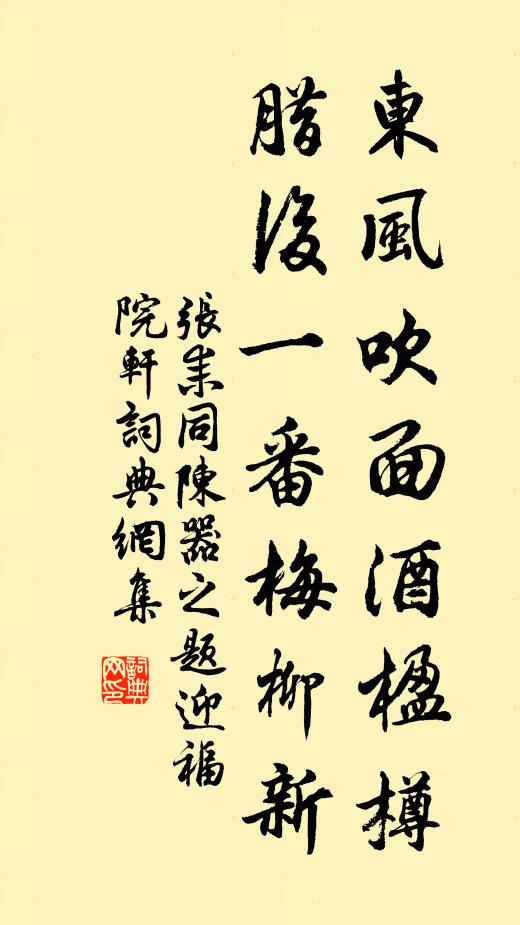 東風吹面酒楹樽
腊後一番梅柳新
張耒同陳器之題迎福
院軒詞典網集
詞典网印